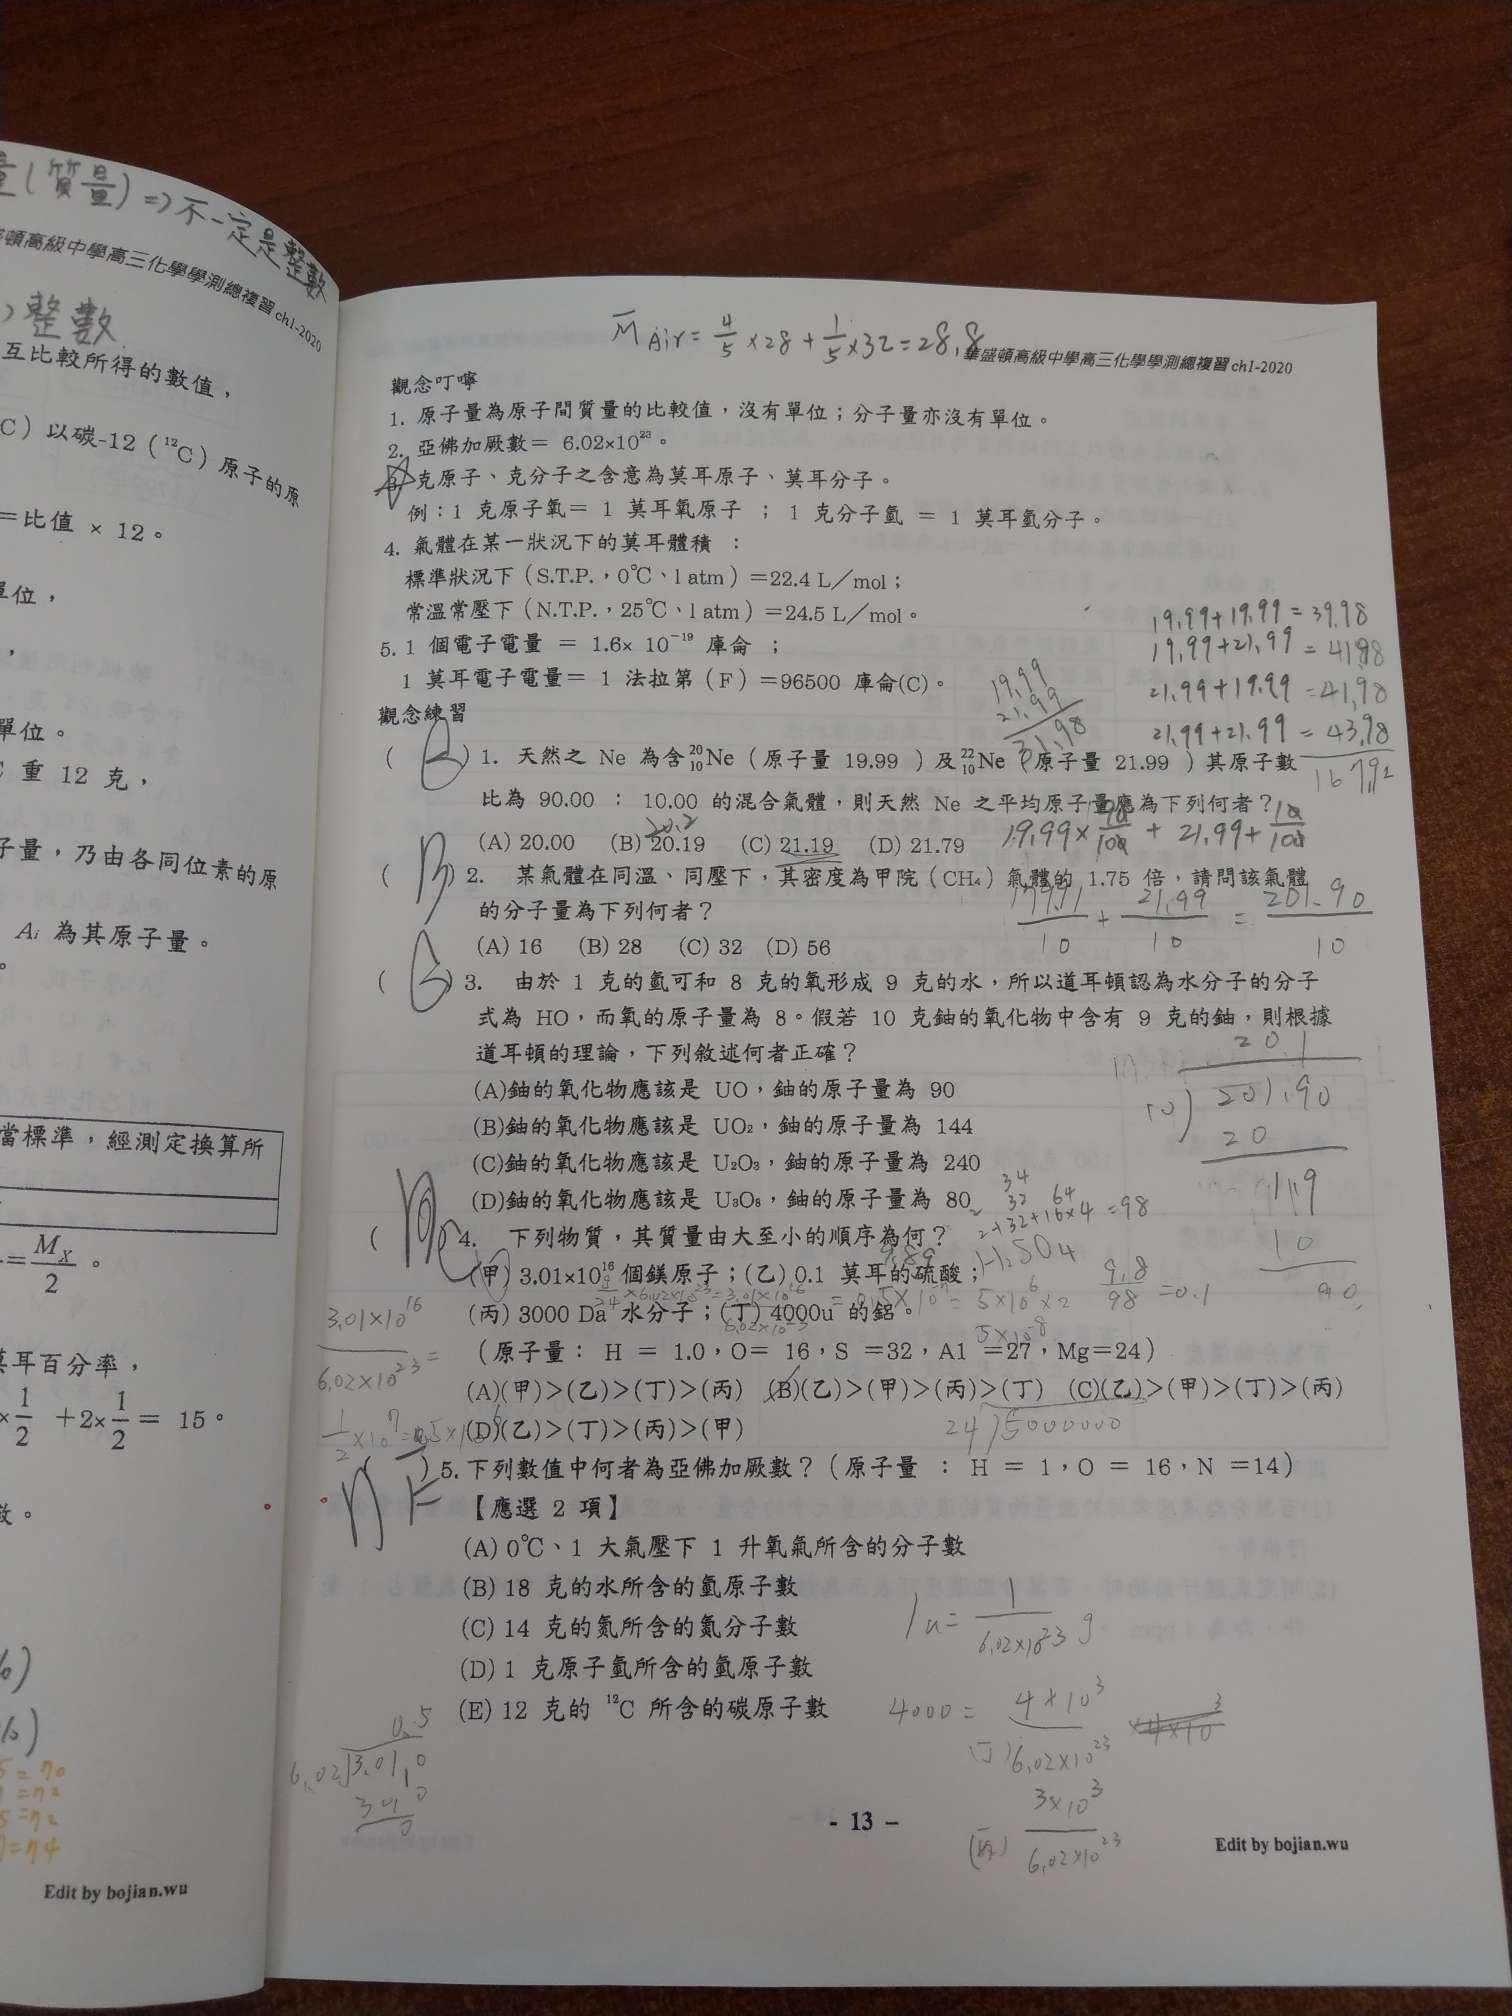 量(質量)=>不一定是整數
頓高級中學高三化學學測總複習 ch1-2020
整數
互比較所得的數值，
C）以碳-12（¹²C）原子的原
＝比值 × 12。
單位，
單位。
重 12 克，
子量，乃由各同位素的原
Aᵢ 為其原子量。
當標準，經測定換算所
=M_X/2。
莫耳百分率，
×1/2 +2×1/2 = 15。
數。
5=70
=72
5=72
=74
Edit by bojian.wu
M̄ Air = 4/5 ×28 + 1/5 ×32 = 28.8
華盛頓高級中學高三化學學測總複習 ch1-2020
觀念叮嚀
1. 原子量為原子間質量的比較值，沒有單位；分子量亦沒有單位。
2. 亞佛加厥數＝ 6.02×10²³。
3. 克原子、克分子之含意為莫耳原子、莫耳分子。
例：1 克原子氧＝ 1 莫耳氧原子 ； 1 克分子氫 ＝ 1 莫耳氫分子。
4. 氣體在某一狀況下的莫耳體積 ：
標準狀況下（S.T.P.，0℃、1 atm）＝22.4 L／mol；
常溫常壓下（N.T.P.，25℃、1 atm）＝24.5 L／mol。
5. 1 個電子電量 ＝ 1.6× 10⁻¹⁹ 庫侖 ；
1 莫耳電子電量＝ 1 法拉第（F）＝96500 庫侖(C)。
19.99+19.99 = 39.98
19.99+21.99 = 41.98
21.99+19.99 = 41.98
21.99+21.99 = 43.98
167.92
19.99
21.99
31.98
觀念練習
( ) 1. 天然之 Ne 為含 ²⁰₁₀Ne（原子量 19.99 ）及 ²²₁₀Ne（原子量 21.99 ）其原子數
比為 90.00 ： 10.00 的混合氣體，則天然 Ne 之平均原子量應為下列何者？
20.2
(A) 20.00 (B) 20.19 (C) 21.19 (D) 21.79
19.99× 90/100 + 21.99+ 10/100
( B ) 2. 某氣體在同溫、同壓下，其密度為甲烷（CH₄）氣體的 1.75 倍，請問該氣體
的分子量為下列何者？
179.91/10 + 21.99/10 = 201.90/10
(A) 16 (B) 28 (C) 32 (D) 56
( ) 3. 由於 1 克的氫可和 8 克的氧形成 9 克的水，所以道耳頓認為水分子的分子
式為 HO，而氧的原子量為 8。假若 10 克鈾的氧化物中含有 9 克的鈾，則根據
道耳頓的理論，下列敘述何者正確？
20.1
10)201.90
20
1.9
10
90
(A)鈾的氧化物應該是 UO，鈾的原子量為 90
(B)鈾的氧化物應該是 UO₂，鈾的原子量為 144
(C)鈾的氧化物應該是 U₂O₃，鈾的原子量為 240
(D)鈾的氧化物應該是 U₃O₈，鈾的原子量為 80
34
2 32 64
2+32+16×4 =98
( ) 4. 下列物質，其質量由大至小的順序為何？
H₂SO₄
9.8/98 =0.1
(甲) 3.01×10¹⁶ 個鎂原子；(乙) 0.1 莫耳的硫酸；
(丙) 3000 Da 水分子；(丁) 4000u 的鋁。
3.01×10¹⁶/6.02×10²³ =
1/2 ×10⁷
（原子量： H = 1.0，O= 16，S =32，Al =27，Mg=24）
(A)(甲)＞(乙)＞(丁)＞(丙) (B)(乙)＞(甲)＞(丙)＞(丁) (C)(乙)＞(甲)＞(丁)＞(丙)
(D)(乙)＞(丁)＞(丙)＞(甲)
24)5000000
( ) 5. 下列數值中何者為亞佛加厥數？（原子量 ： H = 1，O = 16，N =14）
【應選 2 項】
(A) 0℃、1 大氣壓下 1 升氧氣所含的分子數
(B) 18 克的水所含的氫原子數
(C) 14 克的氮所含的氮分子數
(D) 1 克原子氫所含的氫原子數
(E) 12 克的 ¹²C 所含的碳原子數
1u = 1/6.02×10²³ g
4000 = 4×10³/6.02×10²³ ×4×10³
(丁)
(丙) 3×10³/6.02×10²³
0.5
6.02)3.01.0
3010
0
- 13 -
Edit by bojian.wu